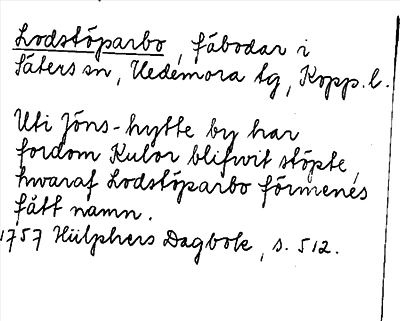 Lodstöparbo, fäbodar i
Säters sn, Hedemora tg, Kopp. l.
Uti Jöns-hytte by har
fordom Kulor blifwit stöpte,
hwaraf Lodstöparbo förmenes
fått namn.
1757 Hülphers Dagbok, s. 512.